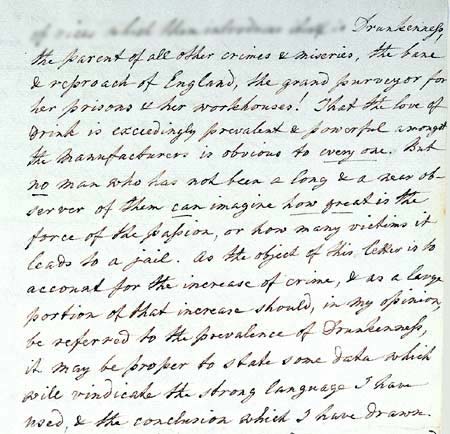 Drunkenness,
the parent of all other crimes & miseries, the bane
& reproach of England, the grand purveyor for
her prisons & her workhouses! That the love of
drink is exceedingly prevalent & powerful amongst
the Manufacturers is obvious to every one. But
no man who has not been a long & a near ob-
server of them can imagine how great is the
force of the passion, or how many victims it
leads to a jail. As the object of this letter is to
account for the increase of crime, & as a large
portion of that increase should, in my opinion,
be referred to the prevalence of Drunkenness,
it may be proper to state some data which
will vindicate the strong language I have
used, & the conclusion which I have drawn.